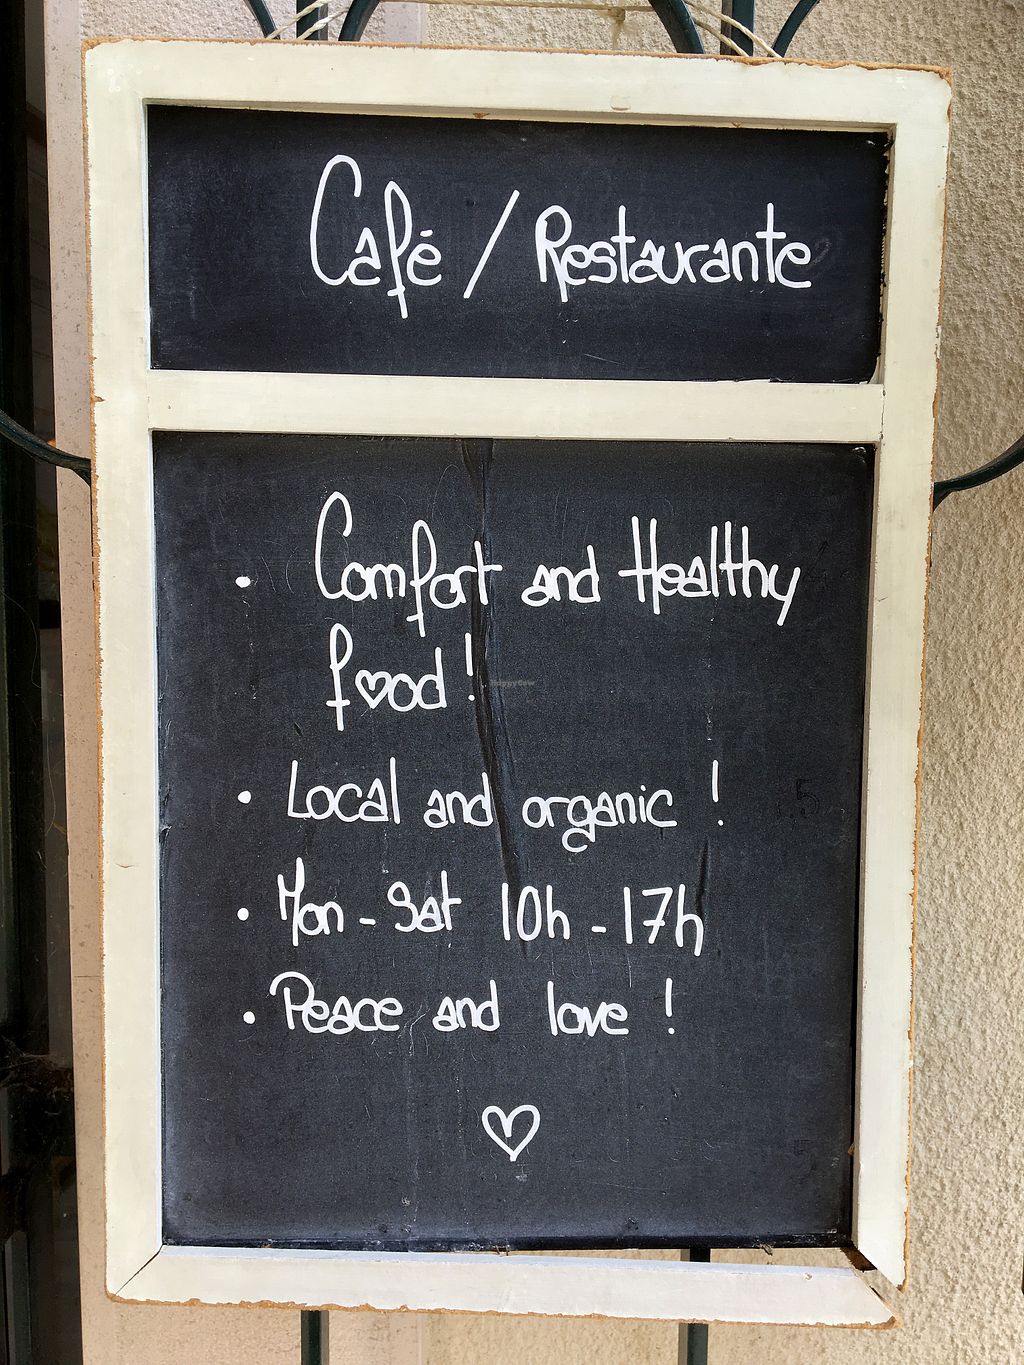 Café / Restaurante
• Comfort and Healthy
f♡od!
• Local and organic !
• Mon - Sat 10h - 17h
• Peace and love !
♡
HappyCow